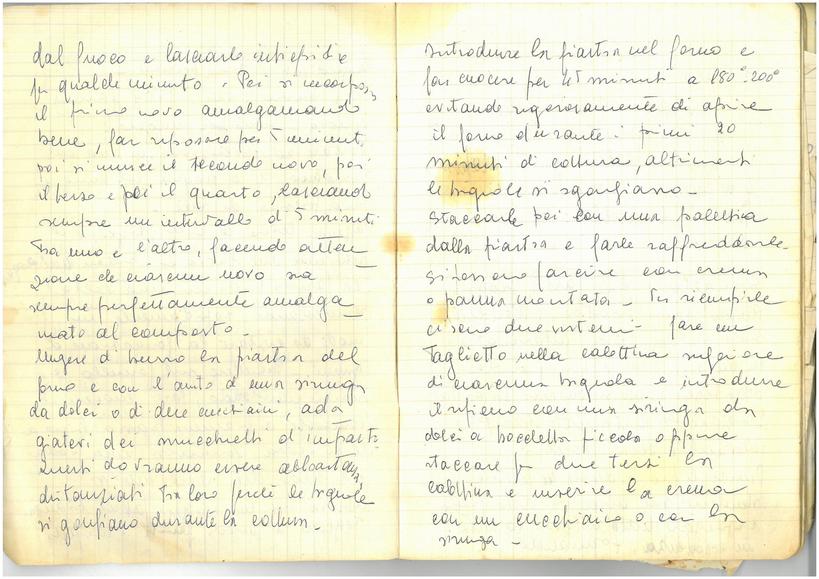 dal fuoco e lasciarlo intiepidire
per qualche minuto. Poi si incorpora
il primo uovo amalgamando
bene, far riposare per 5 minuti
poi si unisce il secondo uovo, poi
il terzo e poi il quarto, lasciando
sempre un intervallo di 5 minuti
tra uno e l'altro, facendo atten_
zione che ciascun uovo sia
sempre perfettamente amalga_
mato al composto.
Ungere di burro la piastra del
forno e con l'aiuto di una siringa
da dolci o di due cucchiaini, ada
giatevi dei mucchietti d'impasto.
Questi dovranno essere abbastanza
distanziati tra loro perchè le bignole
si gonfiano durante la cottura.
Introdurre la piastra nel forno e
far cuocere per 45 minuti a 180°-200°
evitando rigorosamente di aprire
il forno durante i primi 20
minuti di cottura, altrimenti
le bignole si sgonfiano -
Staccarle poi con una palettina
dalla piastra e farle raffreddare.
Si possono farcire con crema
o panna montata - Per riempirle
ci sono due sistemi - fare un
taglietto nella calottina superiore
di ciascuna bignola e introdurre
il ripieno con una siringa da
dolci a bocchetta piccola oppure
staccare per due terzi la
calottina e inserire la crema
con un cucchiaino o con la
siringa -